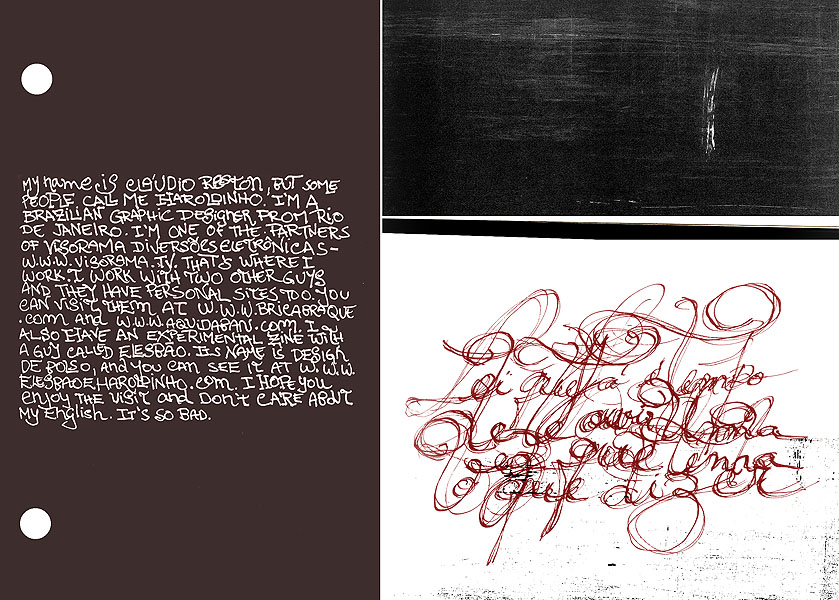 My name is CLÁUDIO RESTON, BUT SOME
PEOPLE CALL ME HAROLDINHO. I'M A
BRAZILIAN GRAPHIC DESIGNER FROM RIO
DE JANEIRO. I'M ONE OF THE PARTNERS
OF VISORAMA DIVERSÕES ELETRÔNICAS -
W.W.W.VISORAMA.TV. THAT'S WHERE I
WORK. I WORK WITH TWO OTHER GUYS
AND THEY HAVE PERSONAL SITES TOO. YOU
CAN VISIT THEM AT W.W.W.BRICABRAQUE
.com and W.W.W.AQUIDABAN.com. I
ALSO HAVE AN EXPERIMENTAL ZINE WITH
A GUY CALLED ELESBÃO. ITS NAME IS DESIGN
DE BOLSO, and YOU can SEE IT AT W.W.W.
ELESBAOEHAROLDINHO.com. I HOPE YOU
enjoy THE VISIT and DON'T CARE ABOUT
My English. IT'S SO BAD.
que
o que dizer